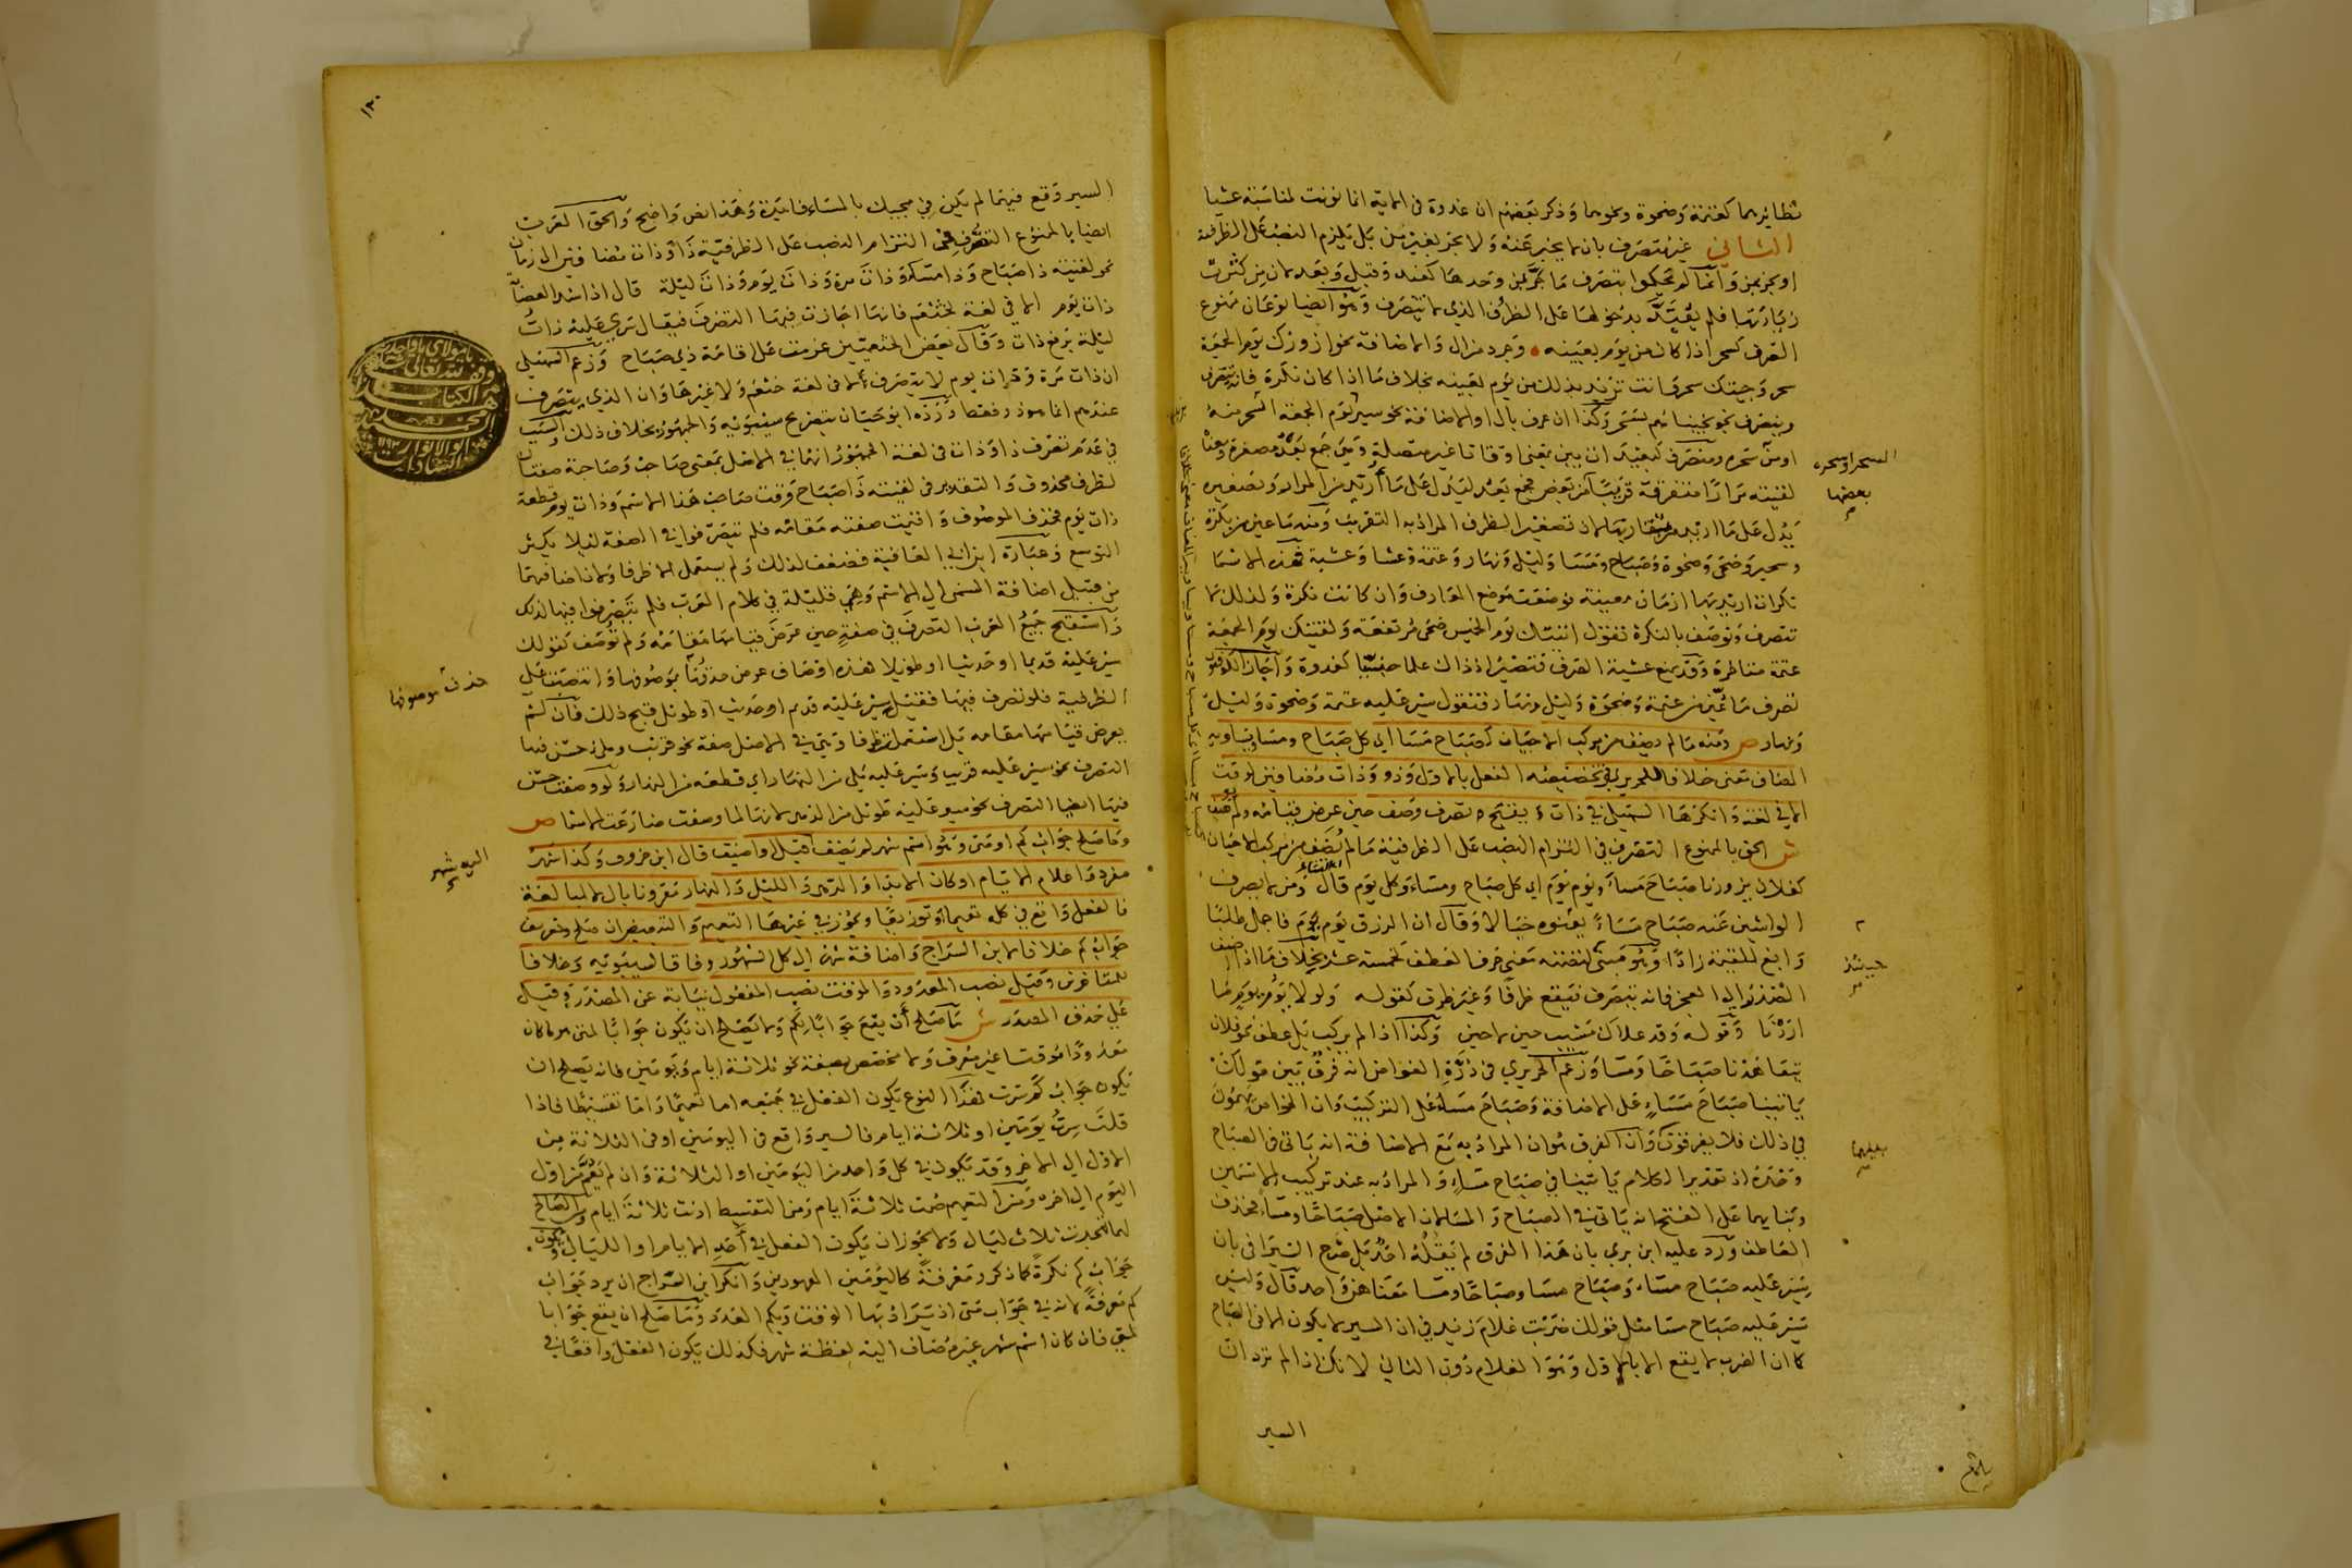 نظائرهما كعتمة وضحوة ونحوهما وذكر بعضهم ان غدوة في الاية انما نونت لمناسبة عشيا
الثاني غير متصرف بان لا يخبر عنه ولا يجر بغير من بل يلزم النصب على الظرفية
او يجر بمن وانما لم يحكموا بتصرف ما يجر بمن وحدها كعند وقبل وبعد لان من كثرت
زيادتها فلم يعتد بدخولها على الظرف الذي لا يتصرف وهو ايضا نوعان ممنوع
الصرف كسحر اذا كان من يوم بعينه وجرد من ال والاضافة نحو ازورك يوم الجمعة
سحر وجيتك سحر وانت تريد بذلك من يوم بعينه بخلاف ما اذا كان نكرة فانه ينصرف
ويتصرف نحو نجيناهم بسحر وكذا ان عرف بال او الاضافة نحو سير يوم الجمعة السحر منه
او من سحره ومنصرف كبعيد ان بين بمعنى اوقاتا غير متصلة وبين جمع بعد مصغرة ومعنا
لقيته مرارا متفرقة قريبا من بعض جمع بعد ليدل على ما اريد من المراد وتصغيره
يدل على ما اريد من تقاربها لان تصغير الظرف المراد به التقريب ومنه ما عين من بكرة
وسحير وضحى وضحوة وصباح ومسا وليل ونهار وعتمة وعشا وعشية فهذه الاسما
نكرات اريد بها ازمان معينة فوضعت موضع المعارف وان كانت نكرة ولذلك لا
تتصرف وتوصف بالنكرة تقول اتيتك يوم الخميس ضحى مرتفعة ولقيتك يوم الجمعة
عتمة متاخرة وقد يمنع عشية الصرف فتصير اذ ذاك علما جنسيا كغدوة واجاز الكوفيون
تصرف ما عين من عتمة وضحوة وليل ونهار فتقول سير عليه عتمة وضحوة وليل
ونهار ص ومنه ما لم يضف من مركب الاحيان كصباح مسا اي كل صباح ومسا ويساويه
المضاف معنى خلافا للحريري في تخصيصه الفعل بالاول وذو وذات مضافين لوقت
الا في لغة وانكرها السهيلي في ذات ويقبح تصرف وصف حين عرض قيامه ولم يوصف
ش الحق بالممنوع التصرف في التزام النصب على الظرفية ما لم يضف من مركب الاحيان
كفلان يزورنا صباح مساء ويوم يوم اي كل صباح ومساء وكل يوم قال الشاعر ومن لا يصرف
الواشين عنه صباح مساء يبغوه خبالا وقال ان الرزق يوم يوم فاجمل طلبا
وابغ للقيمة زادا وهو مبني لتضمنه معنى حرف العطف كخمسة عشر بخلاف ما اذا اضيف
الصدر الى العجز فانه يتصرف فيقع ظرفا وغير ظرف كقوله ولولا يوم يوم ما
اردنا وقوله وقد علاك مشيب حين لا حين وكذا اذا لم يركب بل عطف نحو فلان
يتعاهدنا صباحا ومسا وزعم الحريري في درة الغواص انه فرق بين قولك
ياتينا صباح مساء على الاضافة وصباح مساء على التركيب وان الخواص يهمون
في ذلك فلا يفرقون وان الفرق هو ان المراد به مع الاضافة انه ياتي في الصباح
وحده اذ تقدير الكلام ياتينا في صباح مساء والمراد به عند تركيب الاسمين
وبنايهما على الفتح انه ياتي في الصباح والمسا لان الاصل صباحا ومساء فحذف
العاطف ورد عليه ابن بري بان هذا الفرق لم يقله احد بل صرح السيرافي بان
يسير عليه صباح مساء وصباح مسا وصباحا ومسا معناهن واحد قال وليس
يسير عليه صباح مسا مثل قولك ضربت غلام زيد في ان السير لا يكون الا في الصباح
كما ان الضرب لا يقع الا بالاول وهو الغلام دون الثاني لانك اذا لم ترد ان
السير
السحر او سحره
بعضها
حينئذ
بينهما
بلغ
١٣٠
السير وقع فيهما لم يكن في مجيك بالمساء فايدة وهذا نص واضح والحق العرب
ايضا بالممنوع التصرف في التزام النصب على الظرفية ذا وذات مضافين الى زمان
نحو لقيته ذا صباح وذا مساء وذات مرة وذات يوم وذات ليلة قال اذا شد العصابة
ذات يوم الا في لغة لخثعم فانها اجازت فيها التصرف فيقال سري عليه ذات
ليلة برفع ذات وقال بعض الخثعميين عزمت على اقامة ذي صباح وزعم السهيلي
ان ذات مرة وذات يوم لا يتصرف لا في لغة خثعم ولا غيرها وان الذي يتصرف
عندهم انما هو ذو فقط ورده ابو حيان بتصريح سيبويه والجمهور بخلاف ذلك والسبب
في عدم تصرف ذا وذات في لغة الجمهور انها في الاصل بمعنى صاحب وصاحبة صفتان
لظرف محذوف والتقدير في لقيته ذا صباح وقت صاحب هذا الاسم وذات يوم قطعة
ذات يوم فحذف الموصوف واقيمت صفته مقامه فلم يتصرفوا في الصفة لئلا يكثر
التوسع وعبارة ابن ابي العافية فضعف لذلك ولم يستعمل الا ظرفا ولان اضافتهما
من قبيل اضافة المسمى الى الاسم وهي قليلة في كلام العرب فلم يتصرفوا فيها لذلك
واستقبح جميع العرب التصرف في صفة حين عرض قيامها مقامه ولم توصف كقولك
سير عليه قديما او حديثا او طويلا فهذه اوصاف عرض حذف موصوفها وانتصبت على
الظرفية فلو تصرف فيها فقيل سير عليه قديم او حديث او طويل قبح ذلك فان لم
يعرض قيامها مقامه بل استعملت ظرفا وهي في الاصل صفة نحو قريب وملي حسن فيها
التصرف نحو سير عليه قريب وسير عليه ملي من النهار اي قطعة من النهار ولو وصفت حسن
فيها ايضا التصرف نحو سير عليه طويل من الدهر لانها لما وصفت ضارعت الاسما ص
وما صلح جواب كم او متى وهو اسم شهر لم يضف اليه شهر قيل او اضيف قال ابن خروف وكذا شهر
مفرد او اعلام الايام او كان الابد او الدهر والليل والنهار مقرونا بال لا مبالغة
فالفعل واقع في كله تعميما او توزيعا ويجوز في غيرها التعميم والتبعيض ان صلح وتعريف
جواب كم خلافا لابن السراج واضافة شهر الى كل الشهور وفاقا لسيبويه وخلافا
للمتاخرين وقيل نصب المعدود والموقت نصب المفعول نيابة عن المصدر وقيل
على حذف المصدر ش ما صلح أن يقع جوابا لكم ولا يصلح ان يكون جوابا لمتى هو ما كان
معدودا موقتا غير معرف ولا مخصص بصفة نحو ثلاثة ايام ويومين فانه يصلح ان
يكون جواب كم سرت فهذا النوع يكون الفعل في جميعه اما تعميما واما تقسيطا فاذا
قلت سرت يومين او ثلاثة ايام فالسير واقع في اليومين او في الثلاثة من
الاول الى الاخر وقد يكون في كل واحد من اليومين او الثلاثة وان لم يعم من اول
اليوم الى اخره ومن التعميم صمت ثلاثة ايام ومن التقسيط اذنت ثلاثة ايام ومن الصالح
لهما تهجدت ثلاث ليال ولا يجوز ان يكون الفعل في أحد الايام او الليالي ويكون
جواب كم نكرة كما ذكر ومعرفة كاليومين المعهودين وانكر ابن السراج ان يرد جواب
كم معرفة لانه في جواب متى اذ يراد بها الوقت وبكم العدد وما صلح ان يقع جوابا
لمتى فان كان اسم شهر غير مضاف اليه لفظة شهر فكذلك يكون الفعل واقعا في
حذف موصوفها
اليه شهر